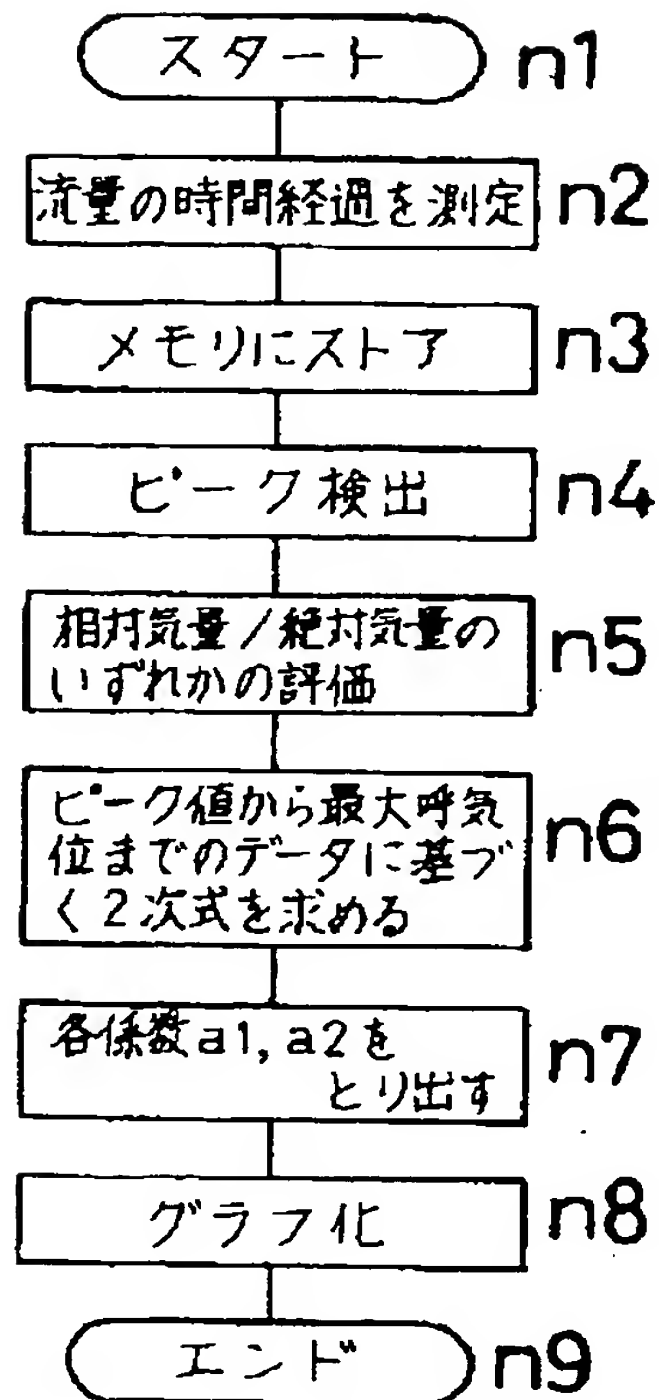 スタート n1
流量の時間経過を測定 n2
メモリにストア n3
ピーク検出 n4
相対気量/絶対気量の
いずれかの評価 n5
ピーク値から最大呼気
位までのデータに基づ n6
く2次式を求める
各係数a1,a2を
とり出す n7
グラフ化 n8
エンド n9